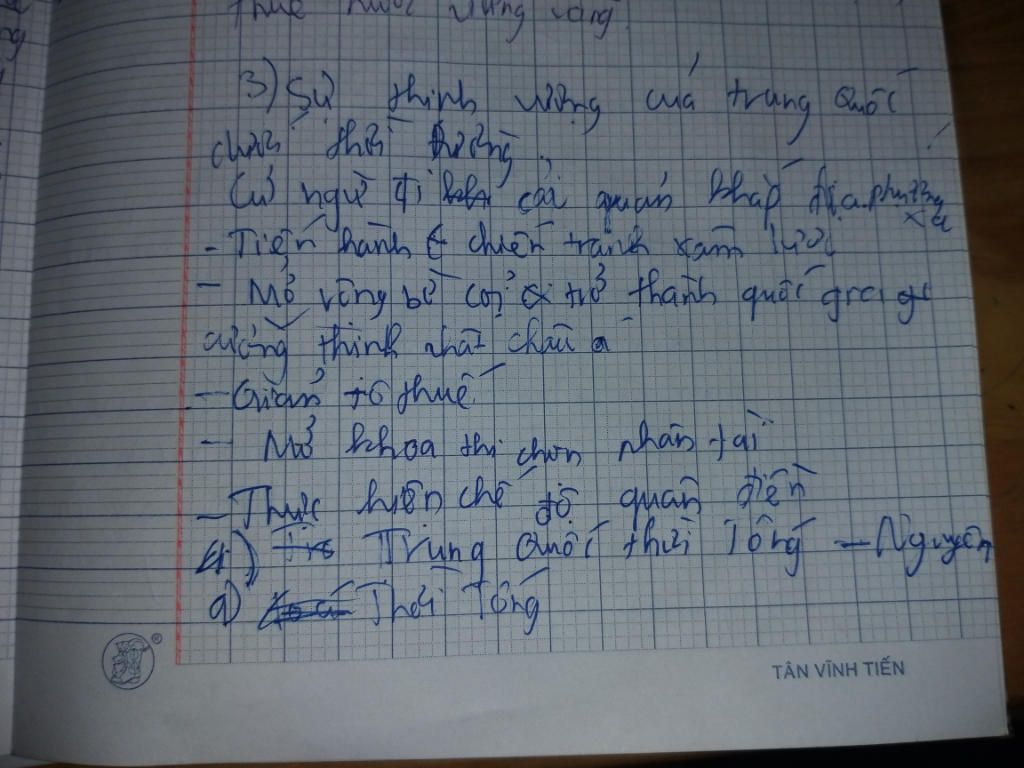 thuế nước vững vàng
3) Sự thịnh vượng của trung Quốc
dưới thời Đường
Cử người đi cai quản khắp địa phương xa
- Tiến hành chiến tranh xâm lược
- Mở rộng bờ cõi trở thành quốc gia
cường thịnh nhất châu a
- Giảm tô thuế
- Mở khoa thi chọn nhân tài
- Thực hiện chế độ quân điền
4) Trung Quốc thời Tống - Nguyên
a) Thời Tống
TÂN VĨNH TIẾN